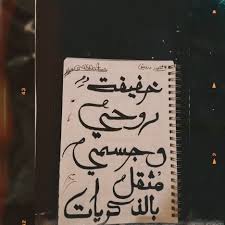 خفيفة
روحي
وجسمي
مثقل
بالذكريات